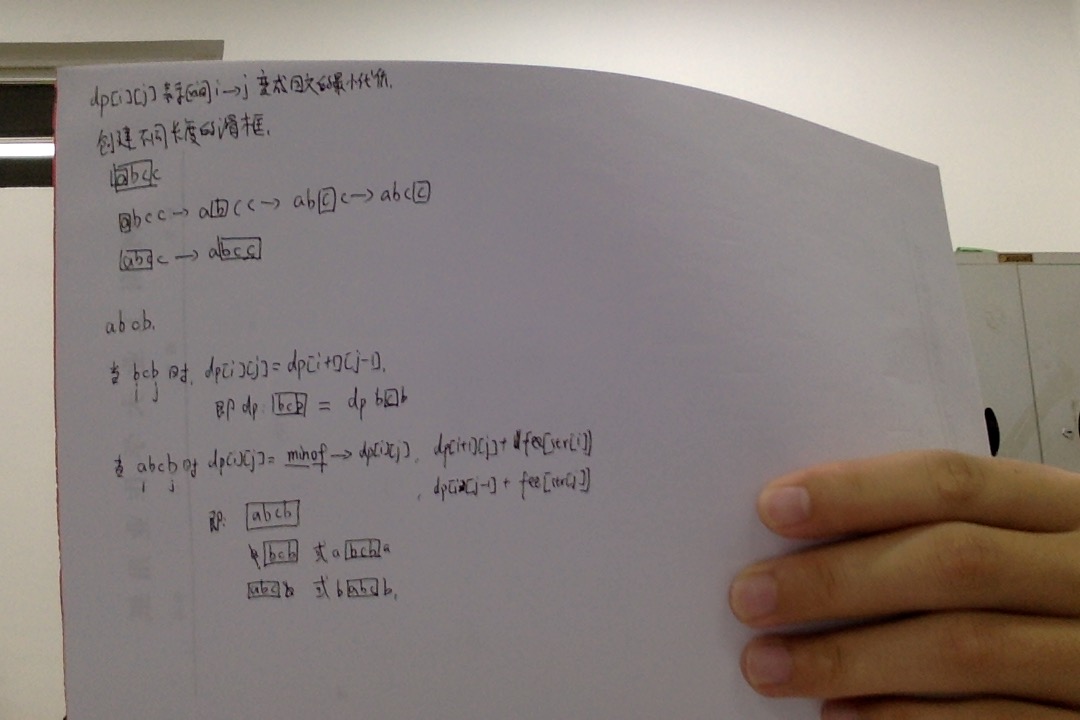 dp[i][j] 表示[i,j] i→j 变成回文的最小代价.
创建不同长度的滑框.
abcc
abcc → abcc → abcc → abcc
abcc → abcc
abcb.
当 bcb 时, dp[i][j] = dp[i+1][j-1],
i j
即 dp bcb = dp bcb
当 abcb 时 dp[i][j] = min of → dp[i][j], dp[i+1][j] + fee[str[i]]
i j
, dp[i][j-1] + fee[str[j]]
即: abcb
bcb 或 a bcb a
abc 或 b abc b,